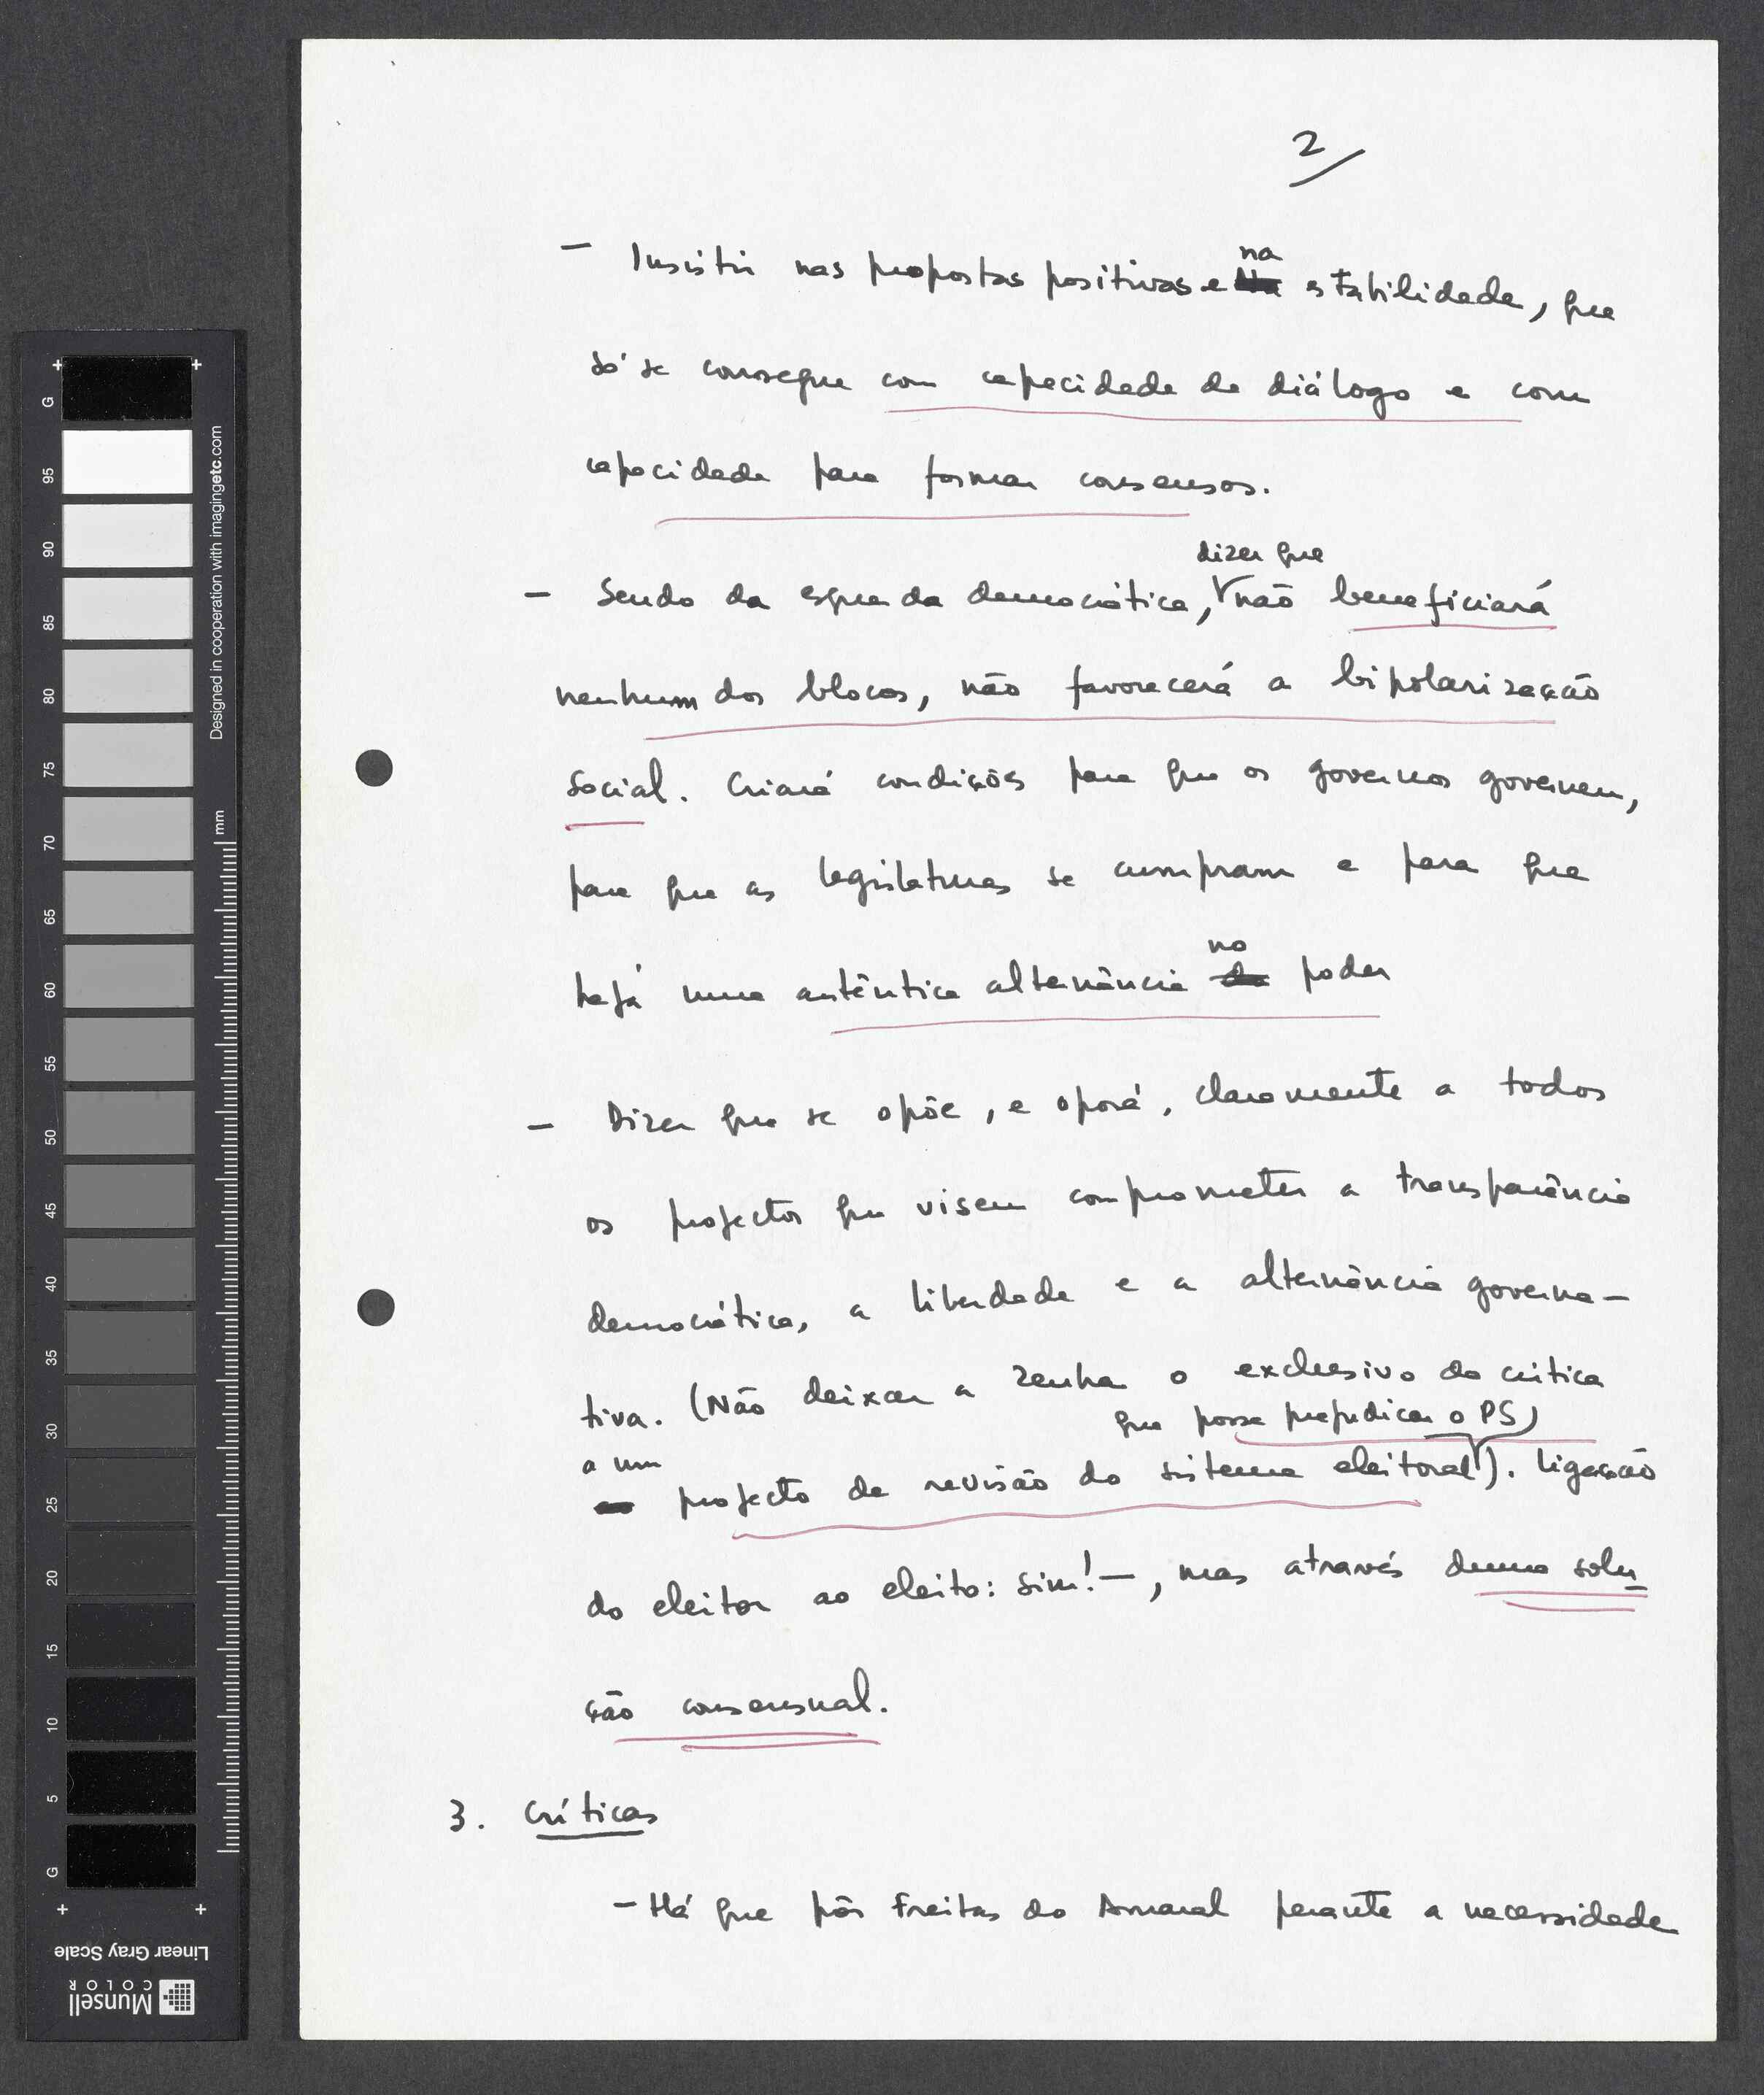 2/
– Insistir nas propostas positivas e na estabilidade, que
só se consegue com capacidade de diálogo e com
capacidade para formar consensos.
dizer que
– Sendo da esquerda democrática, não beneficiará
nenhum dos blocos, não favorecerá a bipolarização
social. Criará condições para que os governos governem,
para que as legislaturas se cumpram e para que
haja uma autêntica alternância no poder
– Dizer que se opõe, e oporá, claramente a todos
os projectos que visem comprometer a transparência
democrática, a liberdade e a alternância governa–
tiva. (Não deixar a Zenha o exclusivo da crítica
que possa prejudicar o PS)
a um projecto de revisão do sistema eleitoral). Ligação
do eleitor ao eleito: sim! –, mas através duma solu
ção consensual.
3. Críticas
– Há que pôr Freitas do Amaral perante a necessidade
G
95
90
85
80
75
70
65
60
55
50
45
40
35
30
25
20
15
10
5
G
Designed in cooperation with imagingetc.com
mm
Linear Gray Scale
Munsell
COLOR